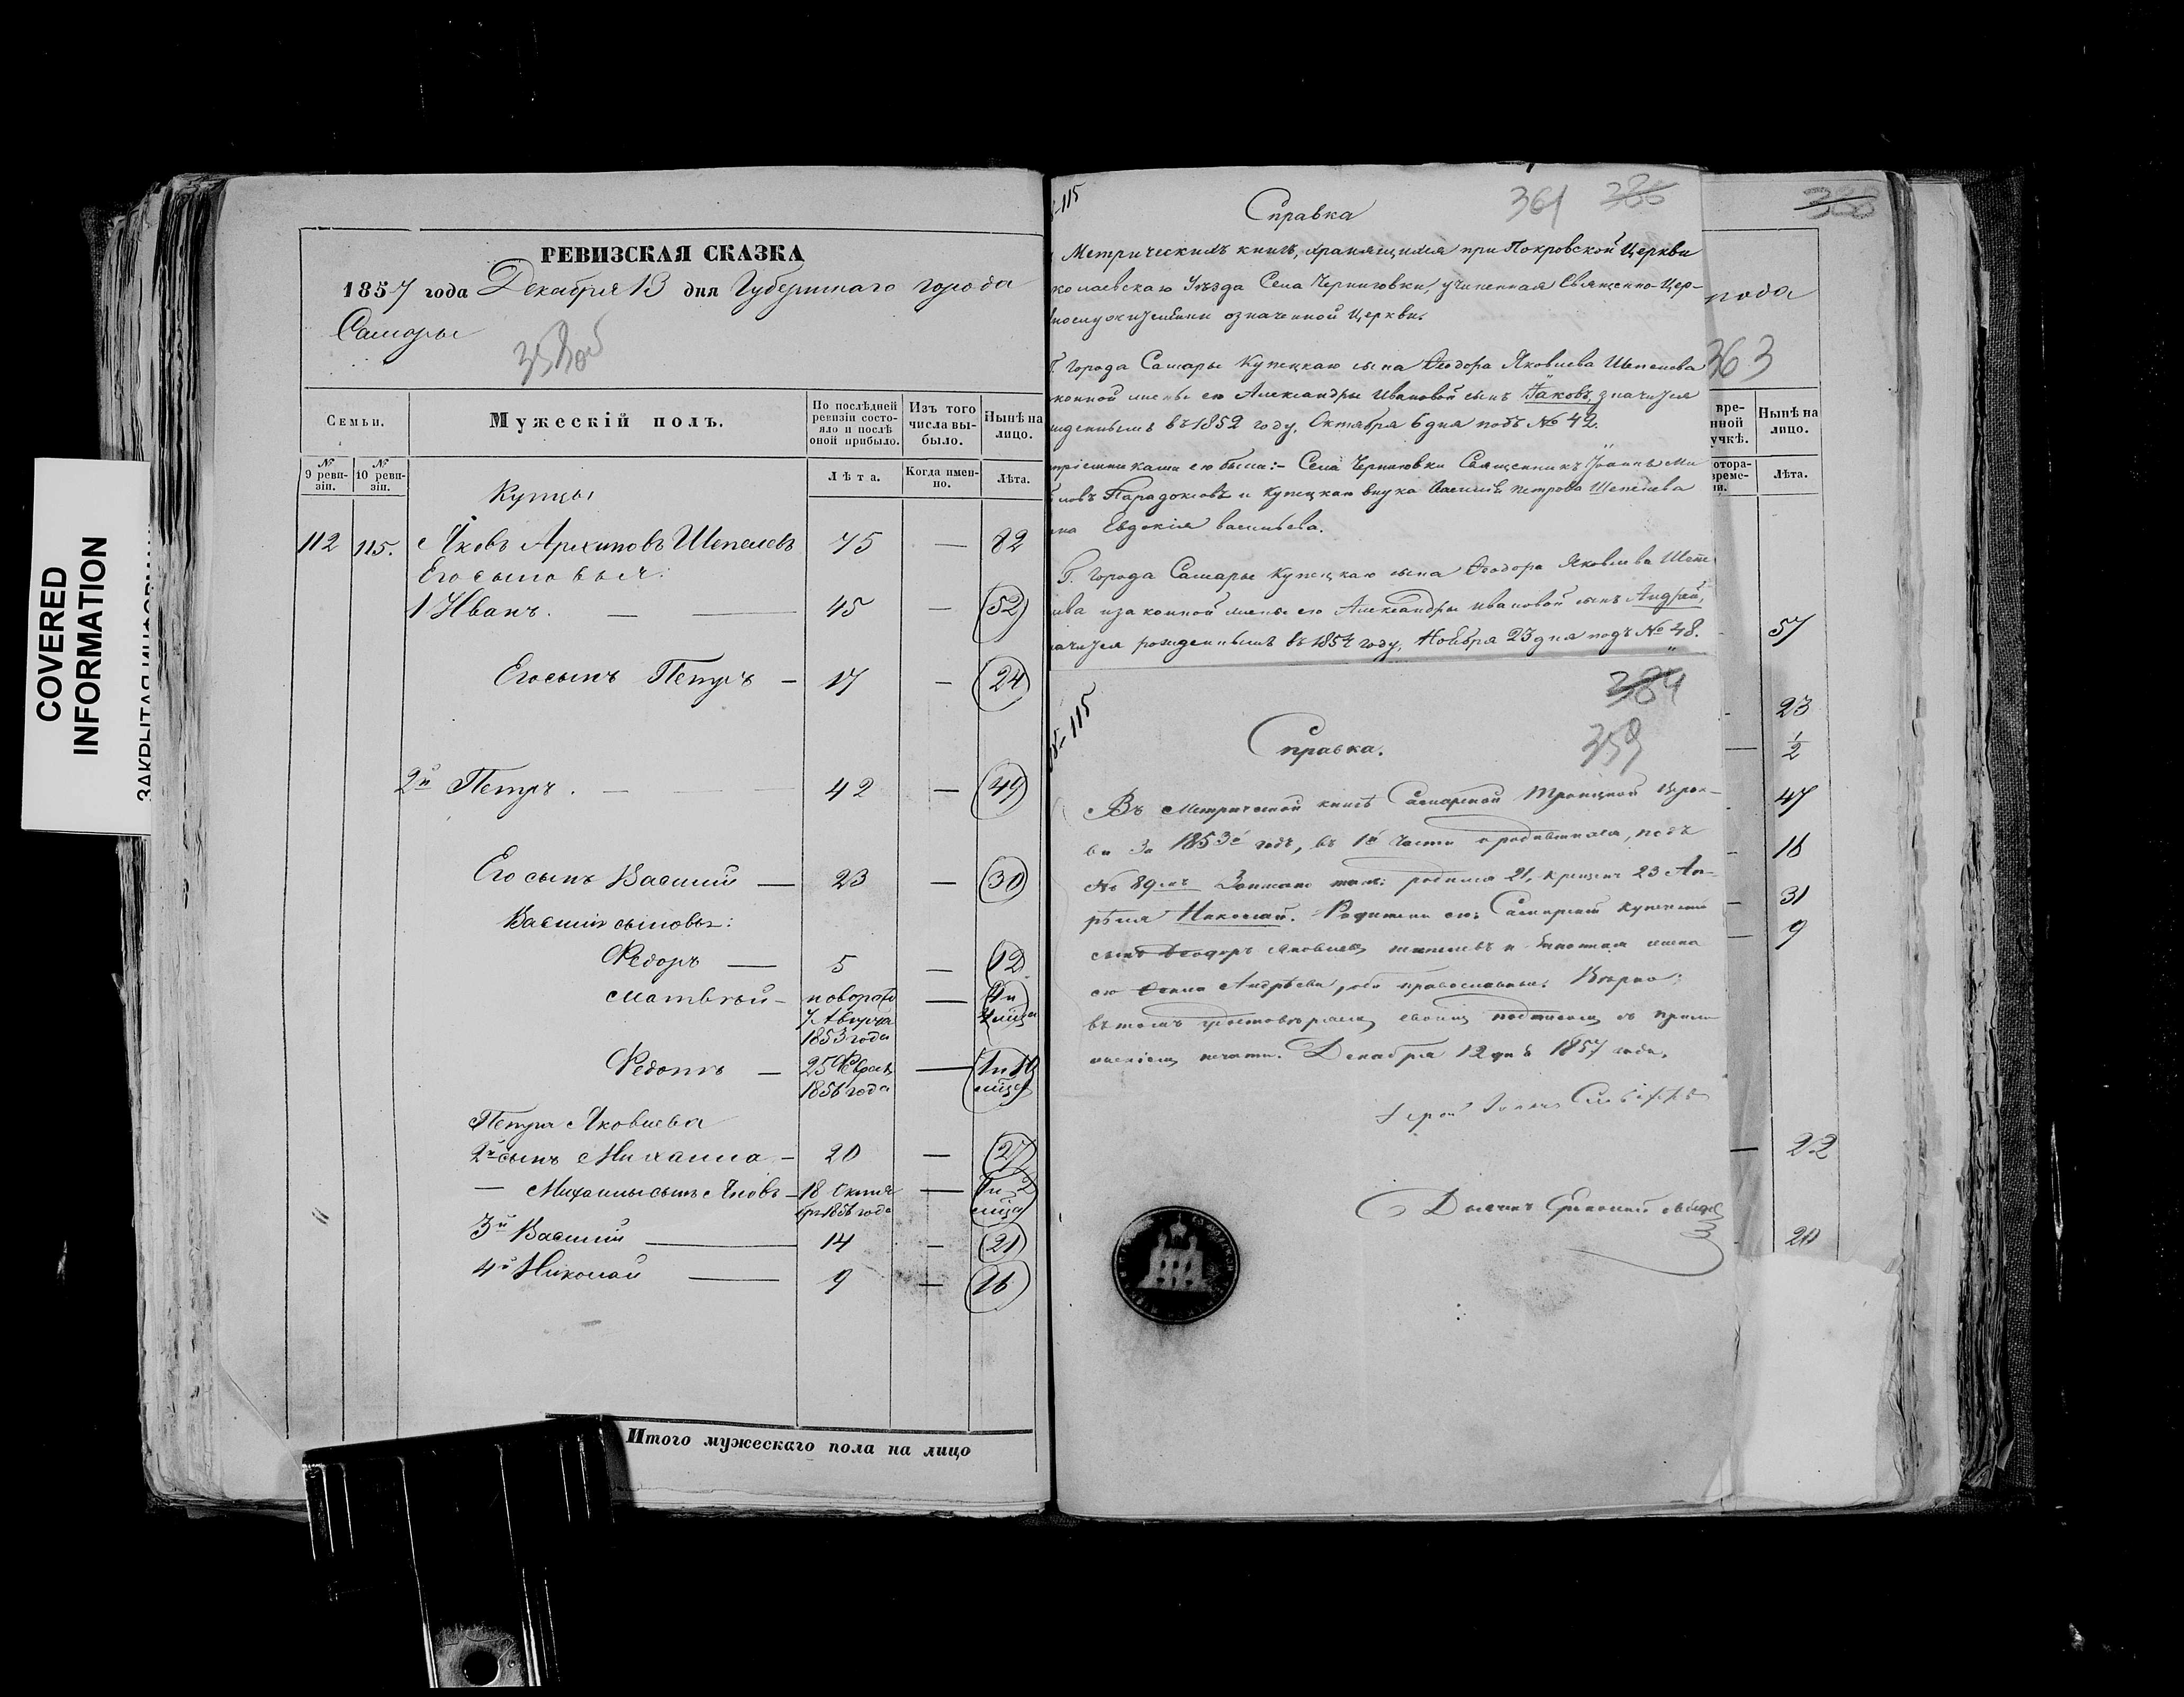 COVERED
INFORMATION
РЕВИЗСКАЯ СКАЗКА
1857 года Декабря 13 дня Губернскаго города
Самары
358об
Семьи.
Мужескій полъ.
По послѣдней ревизіи состояло и послѣ оной прибыло.
Изъ того числа выбыло.
Нынѣ на лицо.
№ 9 ревизіи.
№ 10 ревизіи.
Лѣта.
Когда именно.
Лѣта.
Купцы
112 115. Яковъ Архиповъ Шепелевъ 75 — 82
Его сыновья:
1 Иванъ. — 45 — 52
Его сынъ Петръ — 17 — 24
2й Петръ. — 42 — 49
Его сынъ Василий — 23 — 30
Василия сыновья:
Федоръ — 5 — 12
Матвѣй —
7 Августа
1853 года
Федотъ — 25 Февраля
1856 года
Петра Яковлева
2й сынъ Михаила — 20 — 27
— Михаилы сынъ Яковъ — 18 Октября 1856 года
3й Василий — 14 — 21
4й Николай — 9 — 16
Итого мужескаго пола на лицо
115
Справка
361 386
Метрическихъ книгъ, хранящихся при Покровской Церкви
Уѣзда Села Черниговки, учиненная Священно-Цер-
означенной Церкви.
Города Самары Купецкаго сына Ѳеодора Яковлева Шепелева
его Александры Ивановой сынъ Іаковъ, значится
въ 1852 году, Октября 6 дня подъ № 42.
его были:- Села Черниговки Священникъ Іоаннъ Ми
Парадоксовъ и Купецкаго внука Василія Петрова Шепелева
Евдокія Васильева.
Г. Города Самары Купецкаго сына Ѳеодора Яковлева Шепе
законной жены его Александры Ивановой сынъ Андрей,
рожденнымъ въ 1854 году, Ноября 23 дня подъ № 48.
384
115
359
Справка.
Въ Метрической книгѣ Самарской Троицкой Церк-
ви за 1853й годъ, въ 1й части о родившихся, подъ
№ 89мъ Записано такъ: родился 21, крещенъ 23 Ап-
рѣля Николай. Родители его: Самарский купеческий
сынъ Ѳеодоръ Яковлевъ Шепелевъ и законная жена
его Андрѣева, оба православные. Вѣрно;
въ томъ удостовѣряемъ своимъ подписомъ съ прило-
женіемъ печати. Декабря 12 дня 1857 года.
388
363
Нынѣ на лицо.
Лѣта.
57
23
1/2
47
16
31
9
22
20